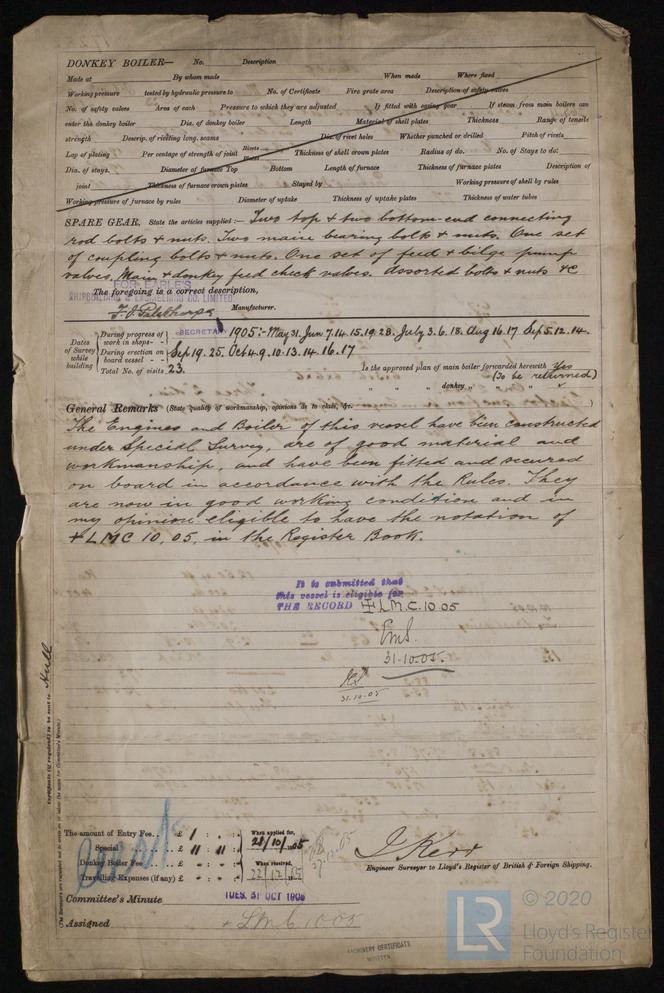 DONKEY BOILER— No. Description
Made at By whom made When made Where fixed
Working pressure tested by hydraulic pressure to No. of Certificate Fire grate area Description of safety valves
No. of safety valves Area of each Pressure to which they are adjusted If fitted with easing gear If steam from main boilers can
enter the donkey boiler Dia. of donkey boiler Length Material of shell plates Thickness Range of tensile
strength Descrip. of riveting long. seams Dia. of rivet holes Whether punched or drilled Pitch of rivets
Lap of plating Per centage of strength of joint Rivets Plates Thickness of shell crown plates Radius of do. No. of Stays to do.
Dia. of stays. Diameter of furnace Top Bottom Length of furnace Thickness of furnace plates Description of
joint Thickness of furnace crown plates Stayed by Working pressure of shell by rules
Working pressure of furnace by rules Diameter of uptake Thickness of uptake plates Thickness of water tubes
SPARE GEAR. State the articles supplied:— Two top & two bottom-end connecting
rod bolts & nuts. Two main bearing bolts & nuts. One set
of coupling bolts & nuts. One set of feed & bilge pump
valves, Main & donkey feed check valves. Assorted bolts & nuts &c
The foregoing is a correct description,
FOR EARLE'S
SHIPBUILDING & ENGINEERING CO. LIMITED.
Manufacturer.
SECRETARY
Dates of Survey while building
During progress of work in shops - - 1905:- May 31. Jun 7.14.15.19.28. July 3.6.18. Aug 16.17 Sep 5.12.14.
During erection on board vessel - - Sep 19.25. Oct 4.9.10.13.14.16.17
Total No. of visits 23. Is the approved plan of main boiler forwarded herewith Yes
(To be returned)
" " " donkey " "
General Remarks (State quality of workmanship, opinions as to class, &c.
The Engines and Boiler of this vessel have been constructed
under Special Survey, are of good material and
workmanship, and have been fitted and secured
on board in accordance with the Rules. They
are now in good working condition and in
my opinion eligible to have the notation of
+ LMC 10.05. in the Register Book.
It is submitted that
this vessel is eligible for
THE RECORD + L.M.C. 10 05
31-10-05.
31.10.05
Certificate (if required) to be sent to Hull
(The Surveyors are requested not to write on or below the space for Committee's Minute.)
The amount of Entry Fee.. £ 1 : - : When applied for,
Special £ 11 : 11 : 28/10/05
Donkey Boiler Fee £ " : " : When received,
Travelling Expenses (if any) £ " : " : 22/12/05
Engineer Surveyor to Lloyd's Register of British & Foreign Shipping.
Committee's Minute TUES. 31 OCT 1905
Assigned + LMC 10.05
MACHINERY CERTIFICATE
WRITTEN
LR © 2020
Lloyd's Register
Foundation